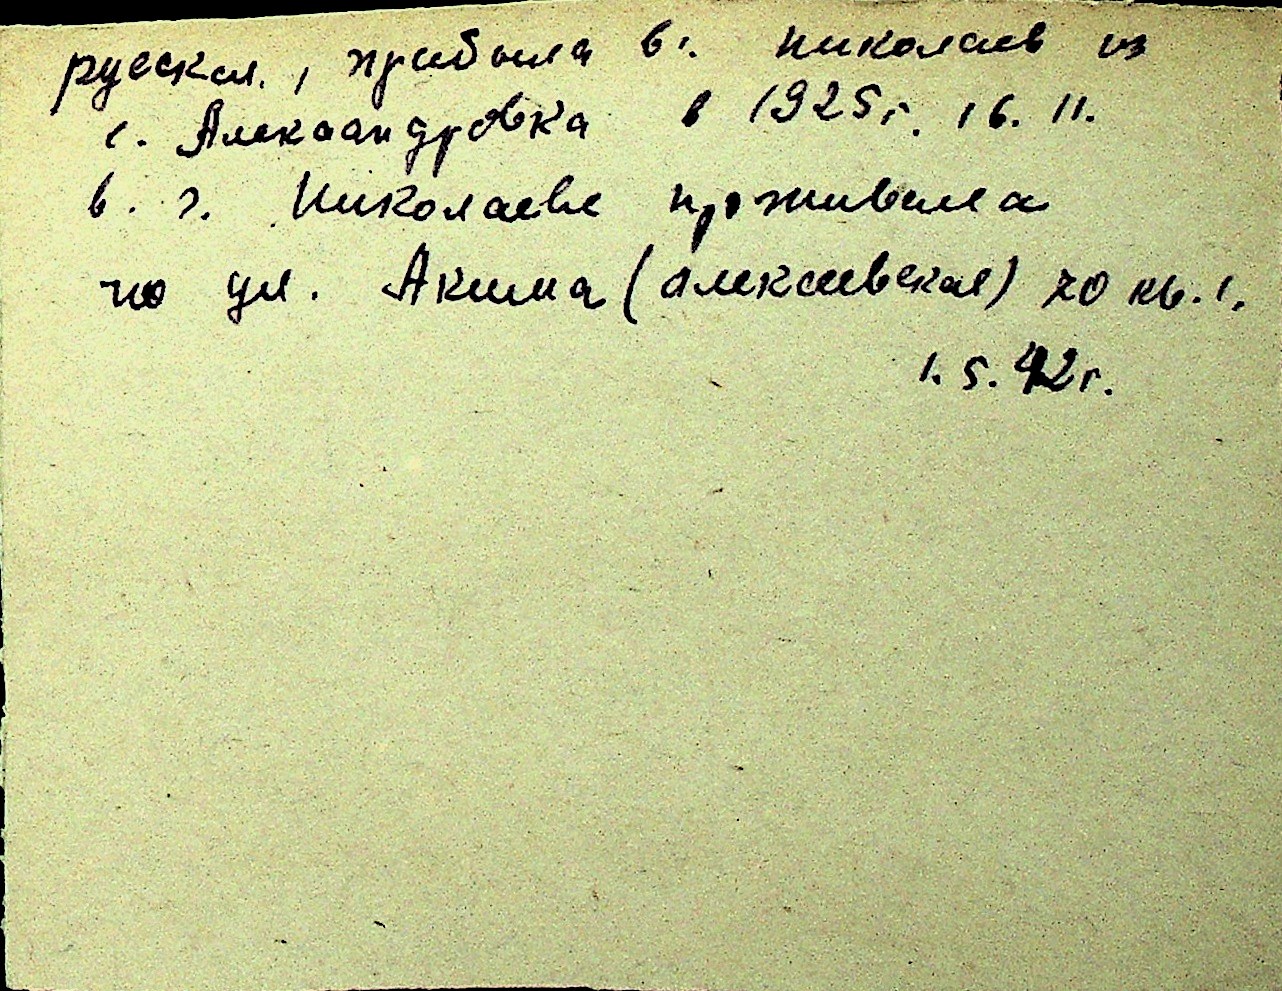 русская, прибыла в г. Николаев из
с. Александровка в 1925 г. 16. 11.
в. г. Николаеве проживала
по ул. Акима (Алексеевская) 70 кв. 1.
1. 5. 42 г.